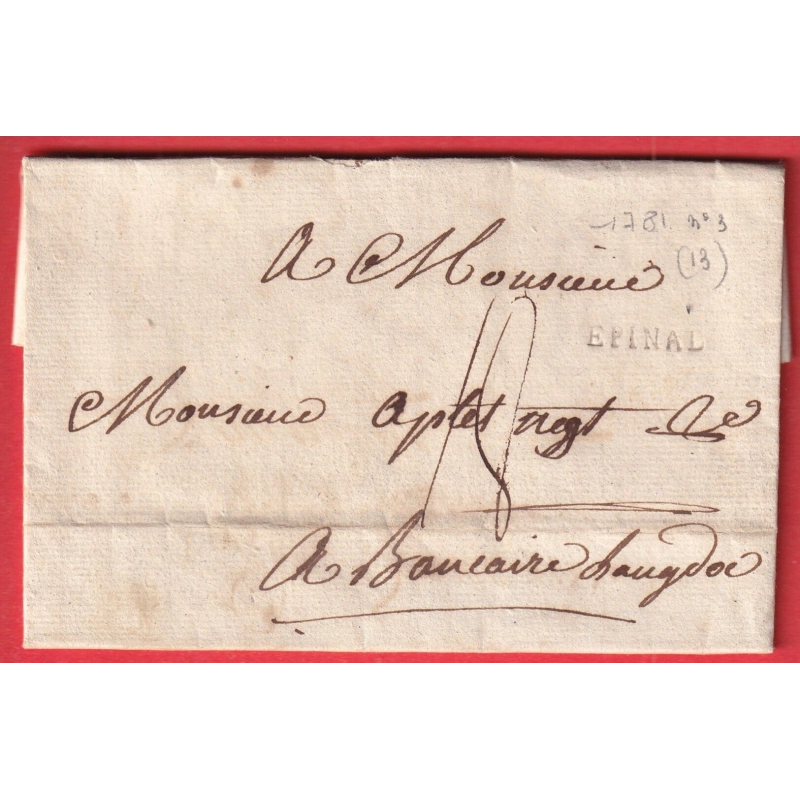 1781 n° 3
(13)
A Monsieur
EPINAL
18
Monsieur aplet negt &c
A Baucaire Langdoc